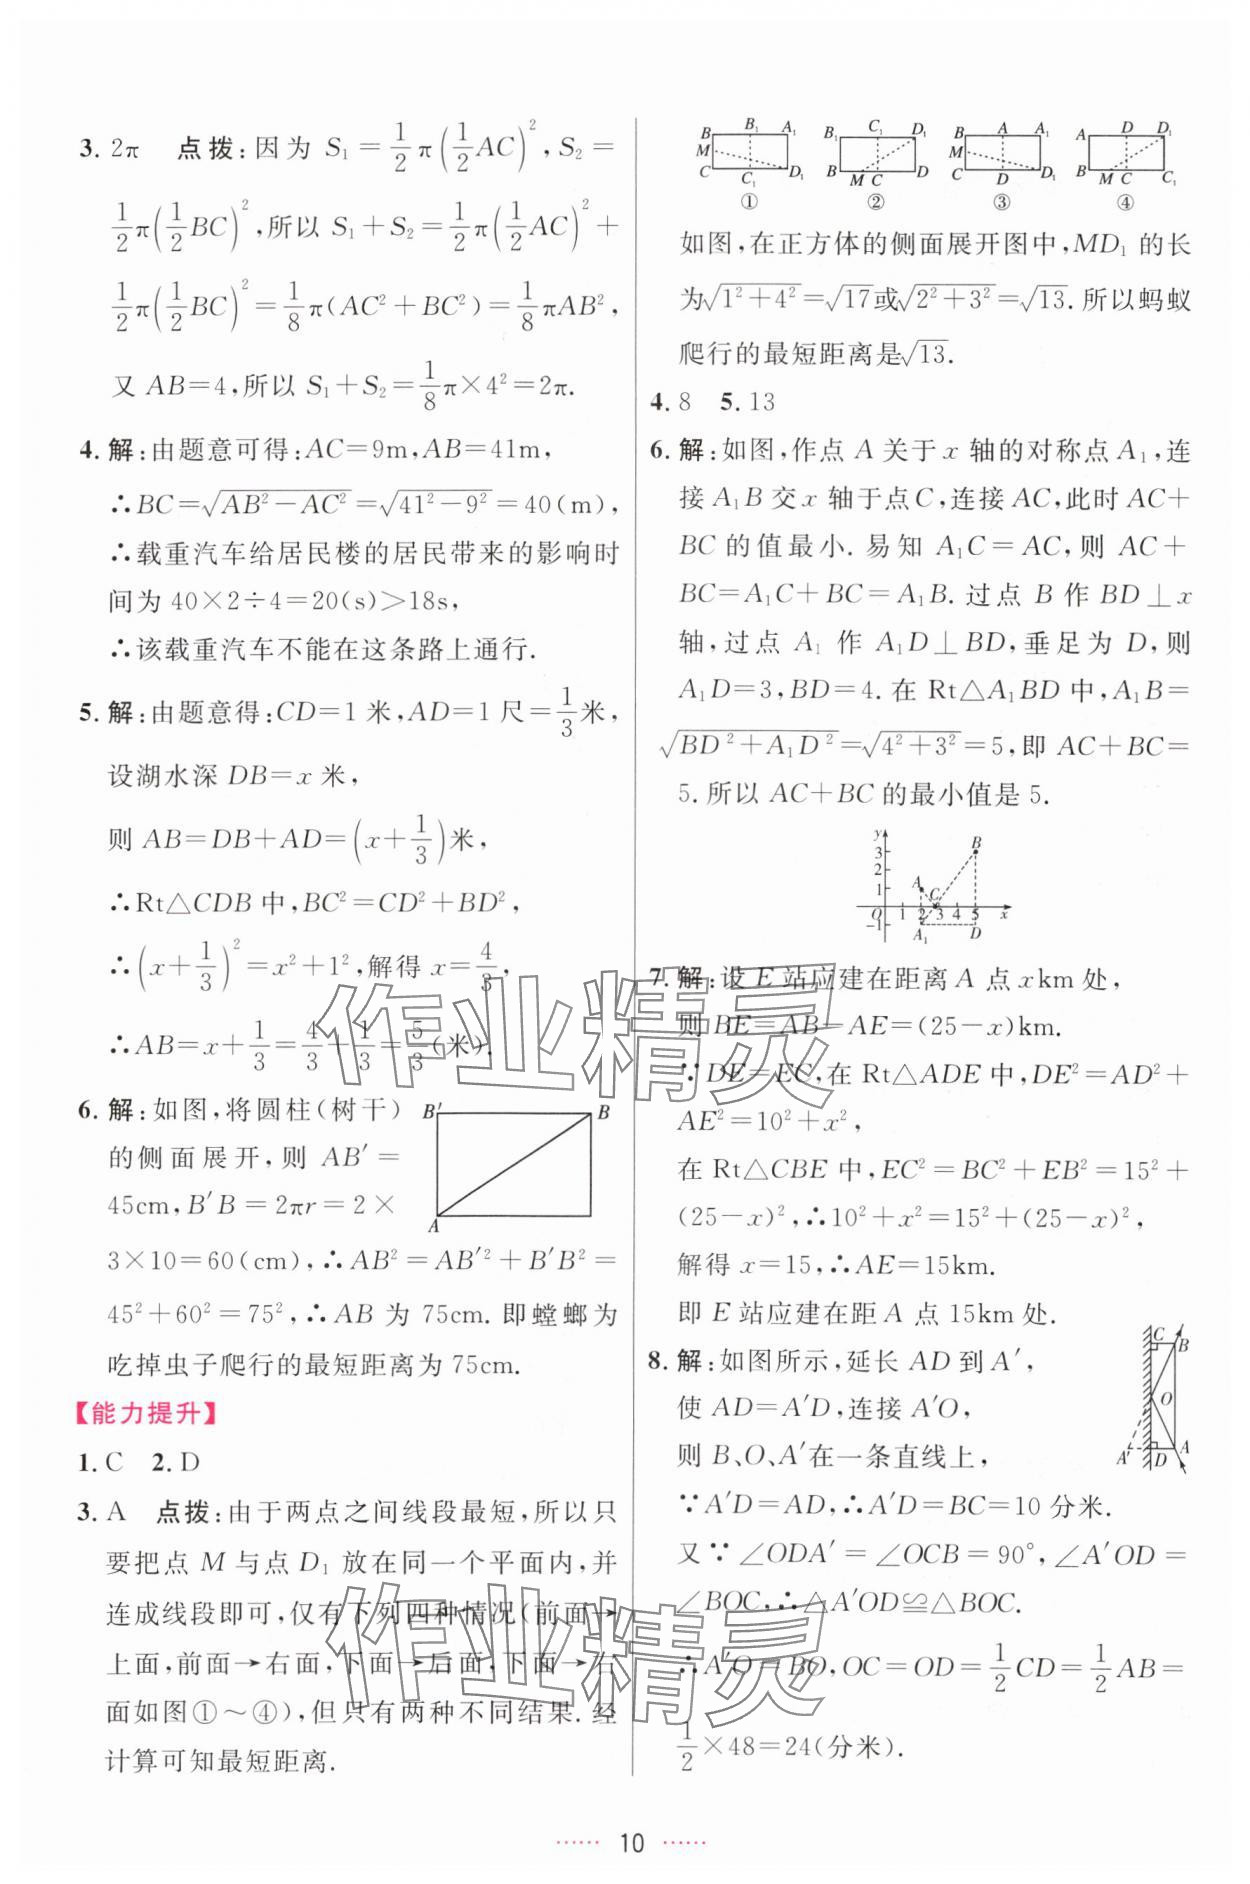 3. 2π　点拨:因为 S₁=1/2π(1/2AC)²,S₂=
1/2π(1/2BC)²,所以 S₁+S₂=1/2π(1/2AC)²+
1/2π(1/2BC)²=1/8π(AC²+BC²)=1/8πAB²,
又 AB=4,所以 S₁+S₂=1/8π×4²=2π.
4. 解:由题意可得:AC=9m,AB=41m,
∴BC=√(AB²-AC²)=√(41²-9²)=40(m),
∴载重汽车给居民楼的居民带来的影响时
间为 40×2÷4=20(s)>18s,
∴该载重汽车不能在这条路上通行.
5. 解:由题意得:CD=1 米,AD=1 尺=1/3米,
设湖水深 DB=x 米,
则 AB=DB+AD=(x+1/3)米,
∴Rt△CDB 中,BC²=CD²+BD²,
∴(x+1/3)²=x²+1²,解得 x=4/3,
∴AB=x+1/3=4/3+1/3=5/3(米).
6. 解:如图,将圆柱(树干)
的侧面展开,则 AB′=
45cm,B′B=2πr=2×
B′ B
A
3×10=60(cm),∴AB²=AB′²+B′B²=
45²+60²=75²,∴AB 为 75cm.即螳螂为
吃掉虫子爬行的最短距离为 75cm.
【能力提升】
1. C　2. D
3. A　点拨:由于两点之间线段最短,所以只
要把点 M 与点 D₁ 放在同一个平面内,并
连成线段即可,仅有下列四种情况(前面→
上面,前面→右面,下面→后面,下面→右
面如图①～④),但只有两种不同结果.经
计算可知最短距离.
B B₁ A₁ M C C₁ D₁ ①
B₁ C₁ D₁ B M C D ②
B A A₁ M C D D₁ ③
A D D₁ B M C C₁ ④
如图,在正方体的侧面展开图中,MD₁ 的长
为√(1²+4²)=√17或√(2²+3²)=√13.所以蚂蚁
爬行的最短距离是√13.
4. 8　5. 13
6. 解:如图,作点 A 关于 x 轴的对称点 A₁,连
接 A₁B 交 x 轴于点 C,连接 AC,此时 AC+
BC 的值最小.易知 A₁C=AC,则 AC+
BC=A₁C+BC=A₁B.过点 B 作 BD⊥x
轴,过点 A₁ 作 A₁D⊥BD,垂足为 D,则
A₁D=3,BD=4.在 Rt△A₁BD 中,A₁B=
√(BD²+A₁D²)=√(4²+3²)=5,即 AC+BC=
5.所以 AC+BC 的最小值是 5.
y
3 B
2
1 A C
O 1 2 3 4 5 x
-1 A₁ D
7. 解:设 E 站应建在距离 A 点 x km 处,
则 BE=AB-AE=(25-x)km.
∵DE=EC,在 Rt△ADE 中,DE²=AD²+
AE²=10²+x²,
在 Rt△CBE 中,EC²=BC²+EB²=15²+
(25-x)²,∴10²+x²=15²+(25-x)²,
解得 x=15,∴AE=15km.
即 E 站应建在距 A 点 15km 处.
8. 解:如图所示,延长 AD 到 A′,
使 AD=A′D,连接 A′O,
则 B、O、A′在一条直线上,
C B
O
A′ D A
∵A′D=AD,∴A′D=BC=10 分米.
又∵∠ODA′=∠OCB=90°,∠A′OD=
∠BOC,∴△A′OD≌△BOC.
∴A′O=BO,OC=OD=1/2CD=1/2AB=
1/2×48=24(分米).
作业精灵
作业精灵
10